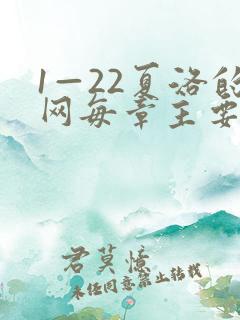 1—22夏洛的
网每章主要
君莫惜
未经同意禁止转载